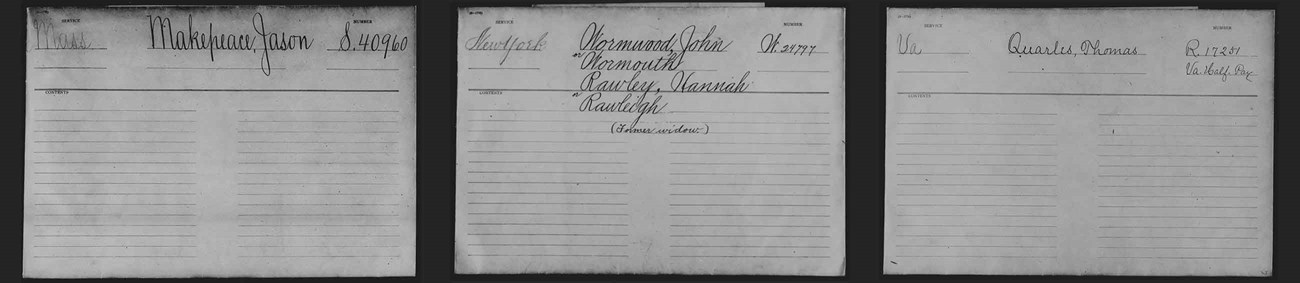 SERVICE
NUMBER
Mass
Makepeace, Jason
S. 40960
CONTENTS
SERVICE
NUMBER
New York
Wormwood, John
W. 24797
or Wormouth
Rawley, Hannah
CONTENTS
or Rawleigh
(Former widow.)
SERVICE
NUMBER
Va
Quarles, Thomas
R. 17251
Va. Half Pay
CONTENTS